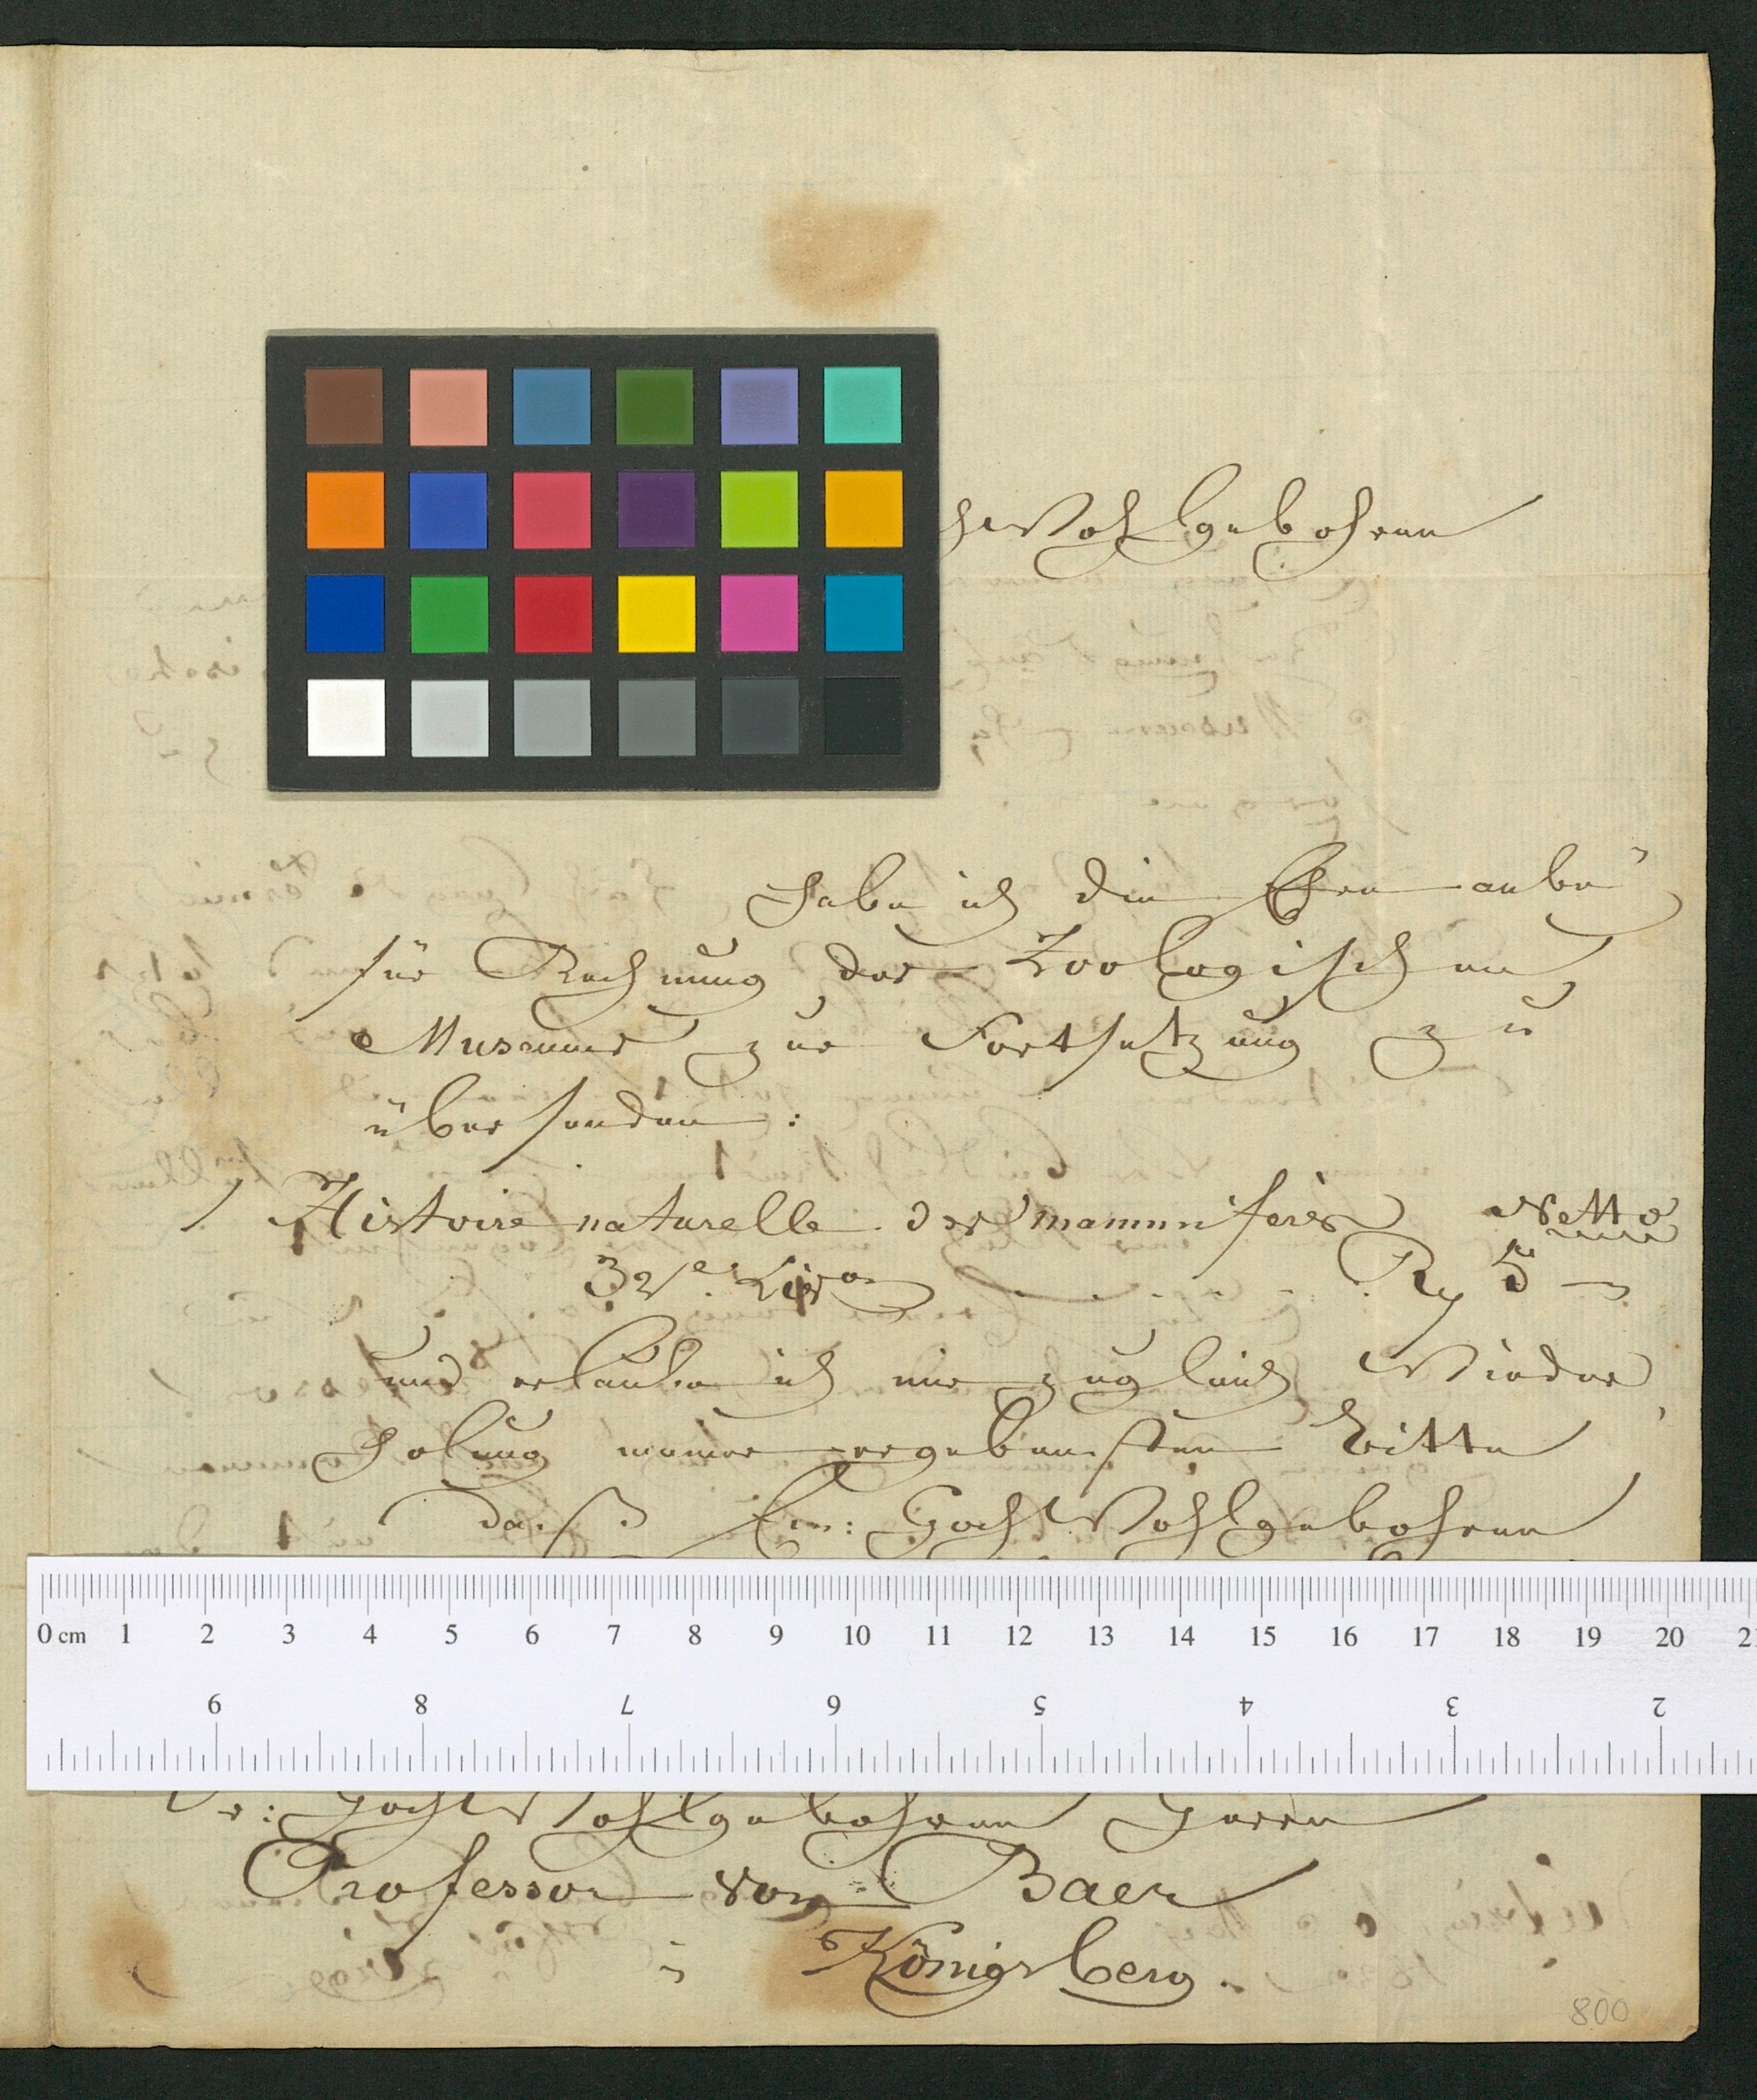 hWohlgebohren
Habe ich die Ehre anbei
für Rechnung des Zoologischen
Museums zur Fortsetzung zu
übersenden:
1 Histoire naturelle des mammifères Netto
32e Livon . . . . . . . R 5 —
und erlaube ich mir zugleich Wieder
holung meiner ergebensten Bitte
daß Ew: HochWohlgebohren
0 cm 1 2 3 4 5 6 7 8 9 10 11 12 13 14 15 16 17 18 19 20 2
9 8 7 6 5 4 3 2
Sr: HochWohlgebohren Herrn
Professor von Baer
in Königsberg.
800